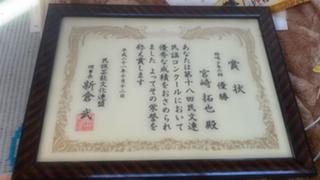 賞状
優勝
宮崎拓也殿
あなたは第十八回民文連
民謡コンクールにおいて
優秀な成績をおさめられ
ました よってその栄誉を
称え賞します
平成二十一年十月十二日
民謡芸能文化連盟
理事長 新倉武